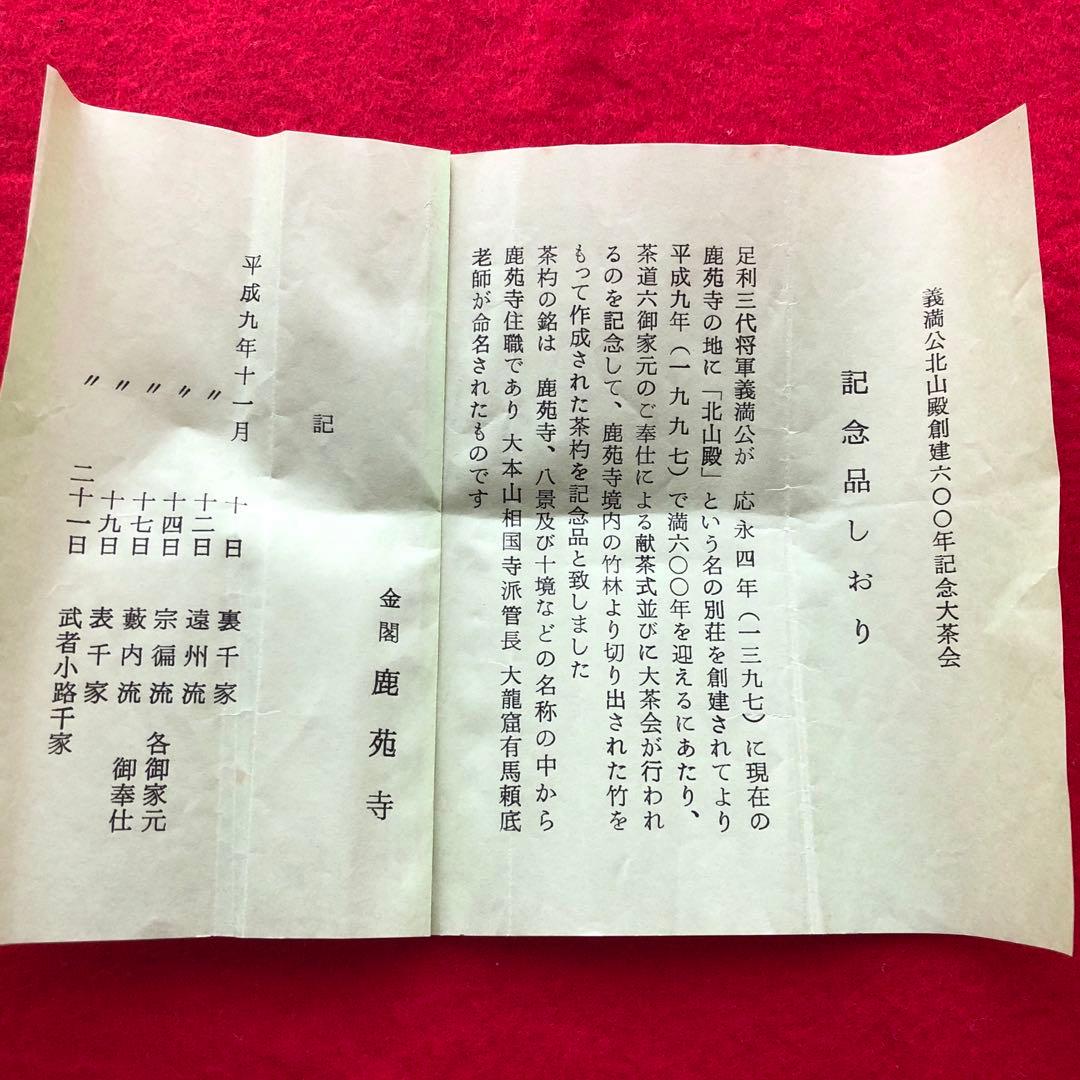 義満公北山殿創建六〇〇年記念大茶会
記念品しおり
足利三代将軍義満公が 応永四年（一三九七）に現在の
鹿苑寺の地に「北山殿」という名の別荘を創建されてより
平成九年（一九九七）で満六〇〇年を迎えるにあたり、
茶道六御家元のご奉仕による献茶式並びに大茶会が行われ
るのを記念して、鹿苑寺境内の竹林より切り出された竹を
もって作成された茶杓を記念品と致しました
茶杓の銘は 鹿苑寺、八景及び十境などの名称の中から
鹿苑寺住職であり 大本山相国寺派管長 大龍窟有馬頼底
老師が命名されたものです
金閣 鹿苑寺
記
平成九年十一月 十日 裏千家
〃 十二日 遠州流
〃 十四日 宗徧流 各御家元
〃 十七日 藪内流 御奉仕
〃 十九日 表千家
〃 二十一日 武者小路千家